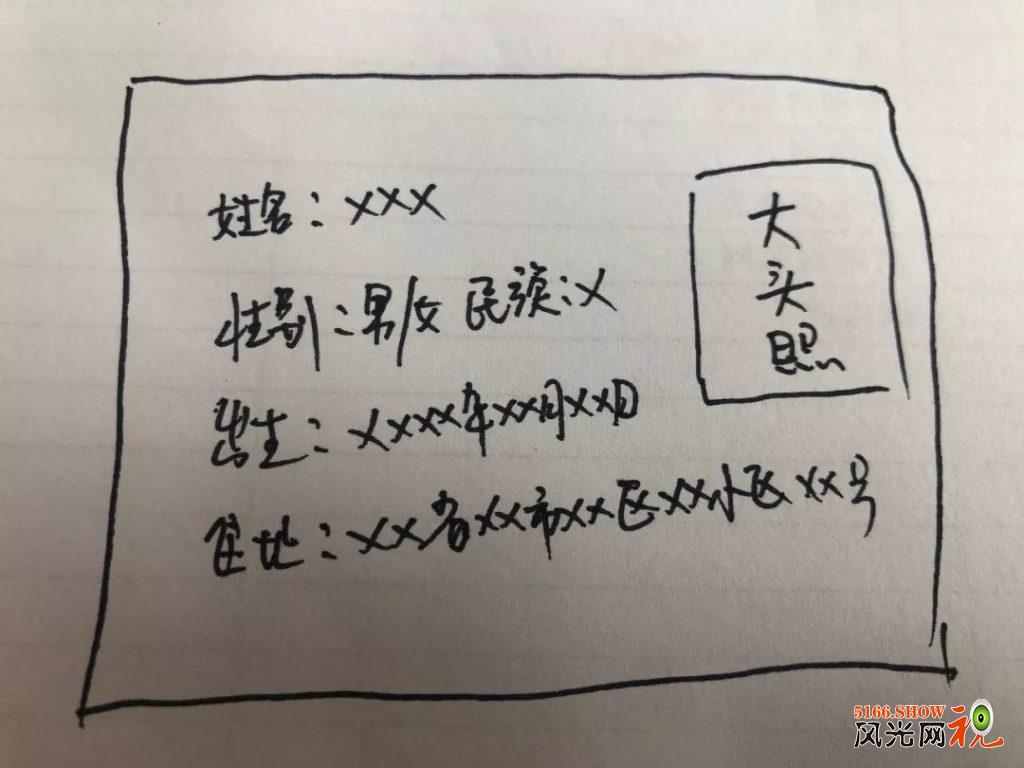 姓名：XXX
性别：男/女 民族：X
出生：XXXX年XX月XX日
住地：XX省XX市XX区XX小区XX号
大
头
照
5166.SHOW
风光网视